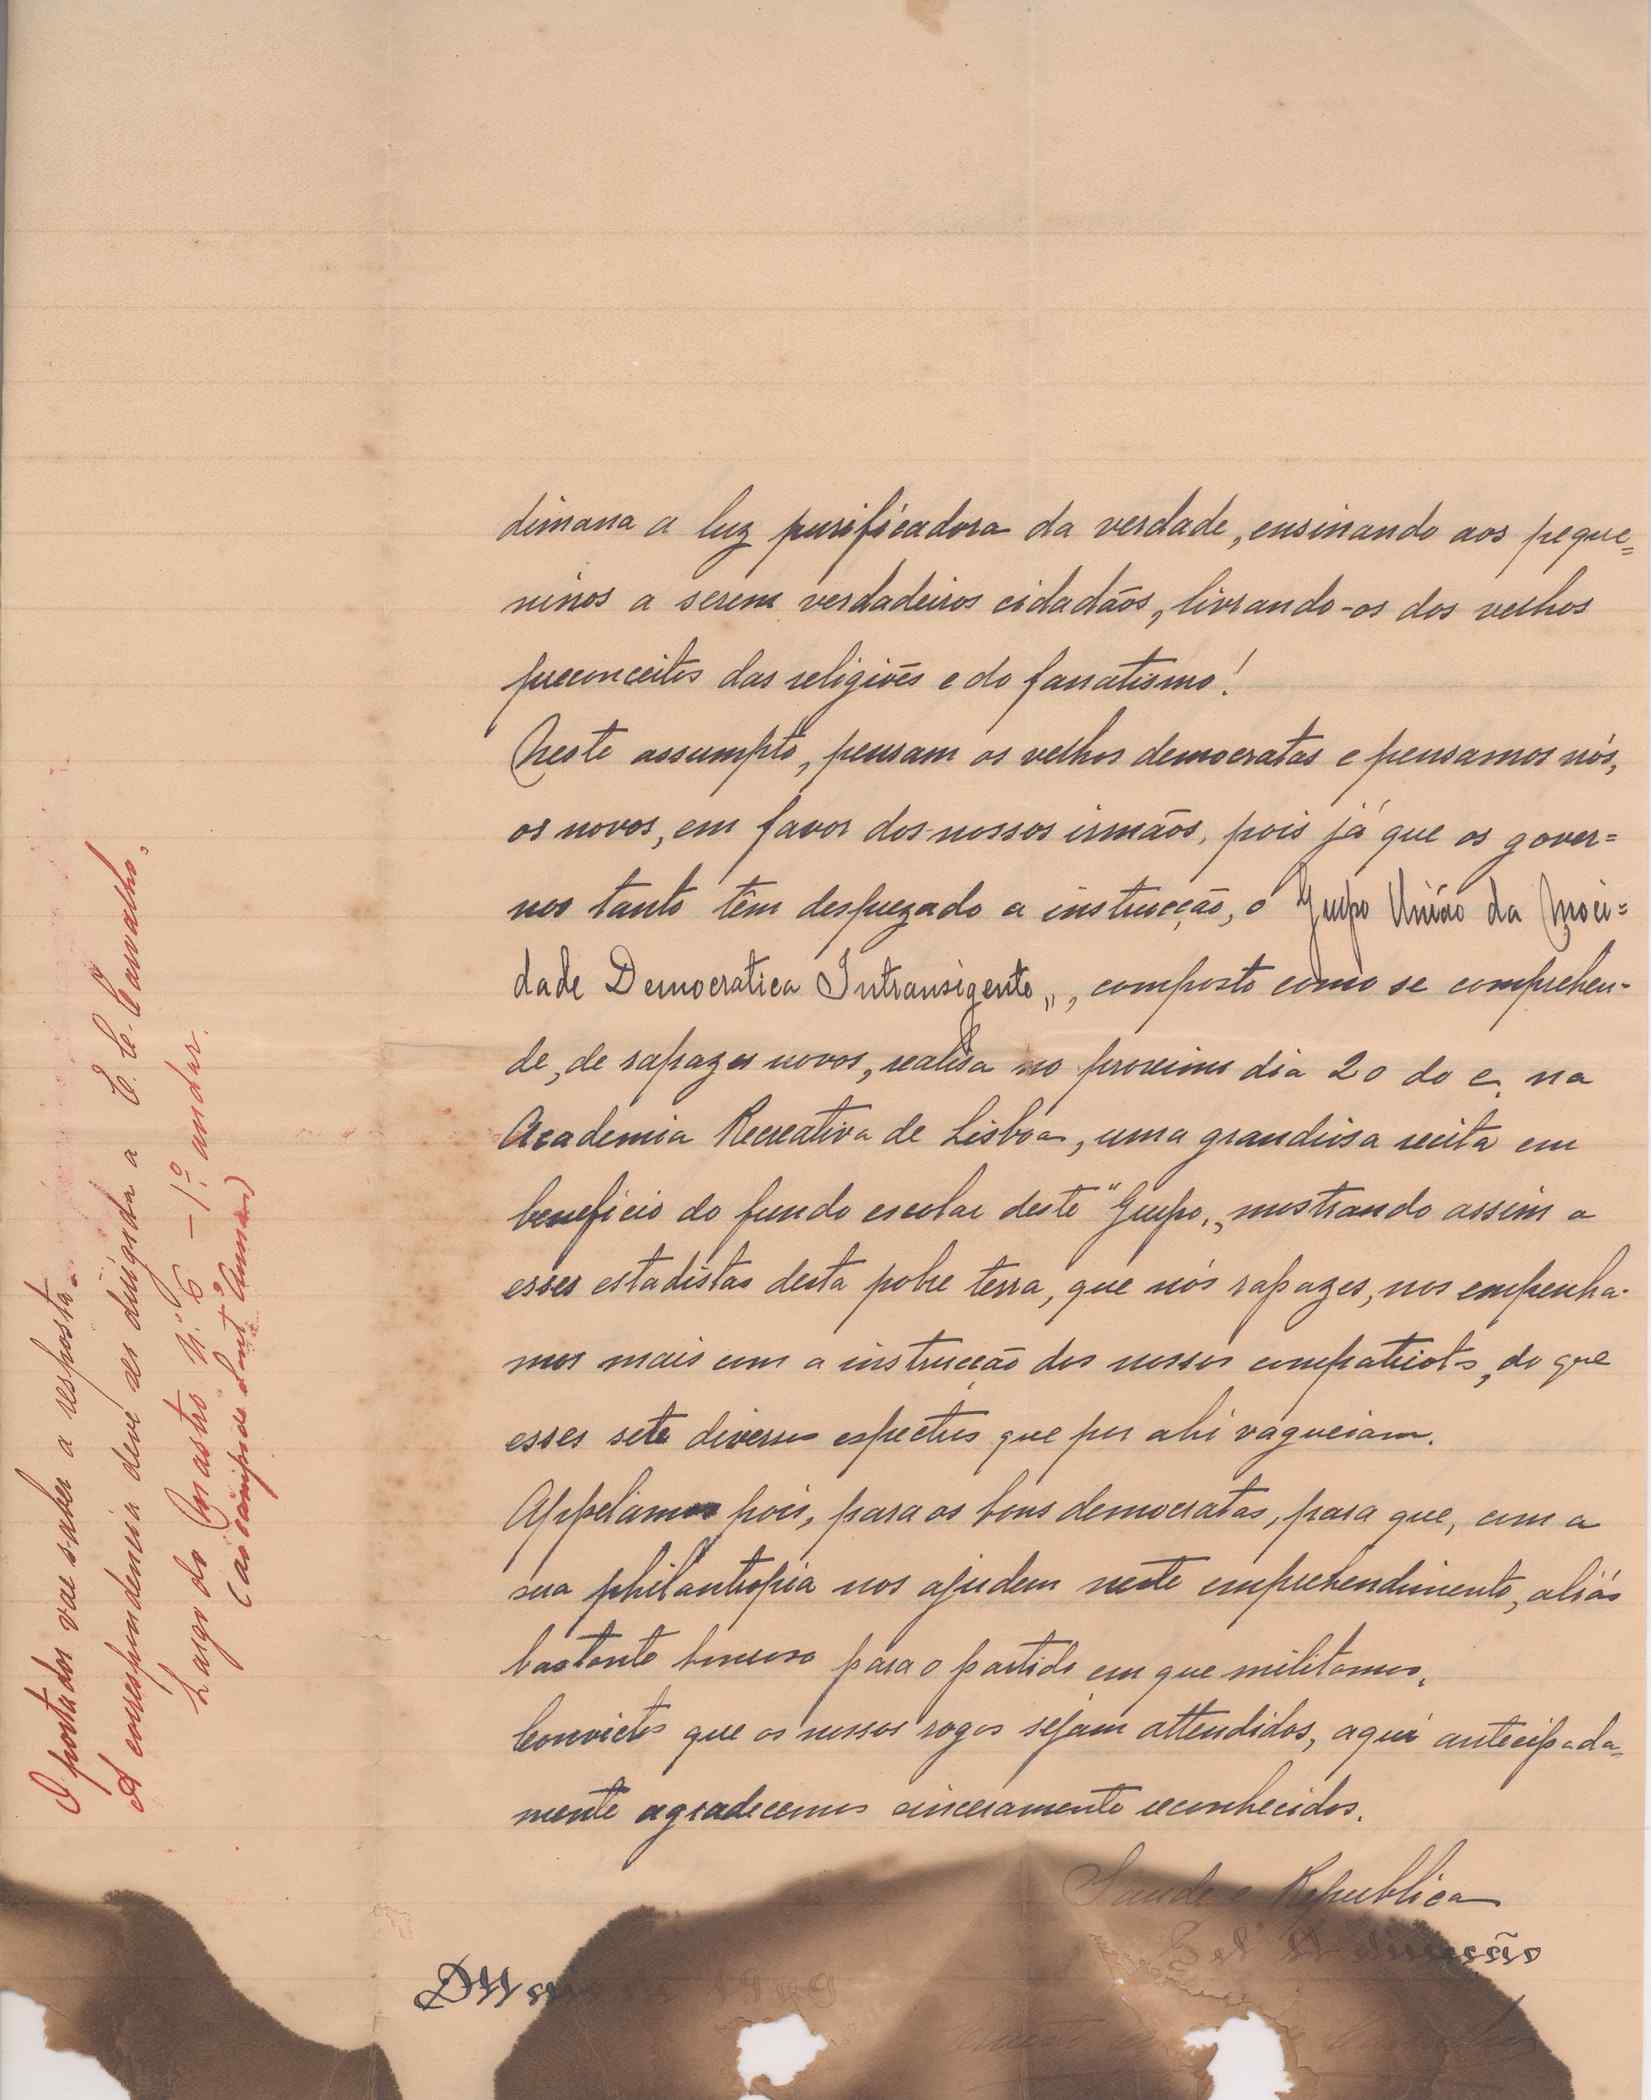 dimana a luz purificadora da verdade, ensinando aos peque=
ninos a serem verdadeiros cidadãos, livrando-os dos velhos
preconceitos das religiões e do fanatismo!
Neste assumpto, pensam os velhos democratas e pensamos nós,
os novos, em favor dos nossos irmãos, pois já que os gover=
nos tanto têm desprezado a instrucção, o Grupo União da Moci=
dade Democratica Intransigente„, composto como se comprehen-
de, de rapazes novos, realisa no proximo dia 20 do c. na
Academia Recreativa de Lisboa, uma grandiosa recita em
beneficio do fundo escolar deste "Grupo„, mostrando assim a
esses estadistas desta pobre terra, que nós rapazes, nos empenha-
mos mais com a instrucção dos nossos compatriotas, do que
esses sete diversos espectros que por ahi vagueiam.
Appelamos pois, para os bons democratas, para que, com a
sua philantropia nos ajudem neste emprehendimento, aliás
bastante honroso para o partido em que militamos.
Convictos que os nossos rogos sejam attendidos, aqui antecipada=
mente agradecemos sinceramente reconhecidos.
Saude e Republica
Pel' A direcção
O portador vae saber a resposta.
A correspondencia deve ser dirigida a E. C. Carvalho,
Largo do n.º 6 - 1º andar.